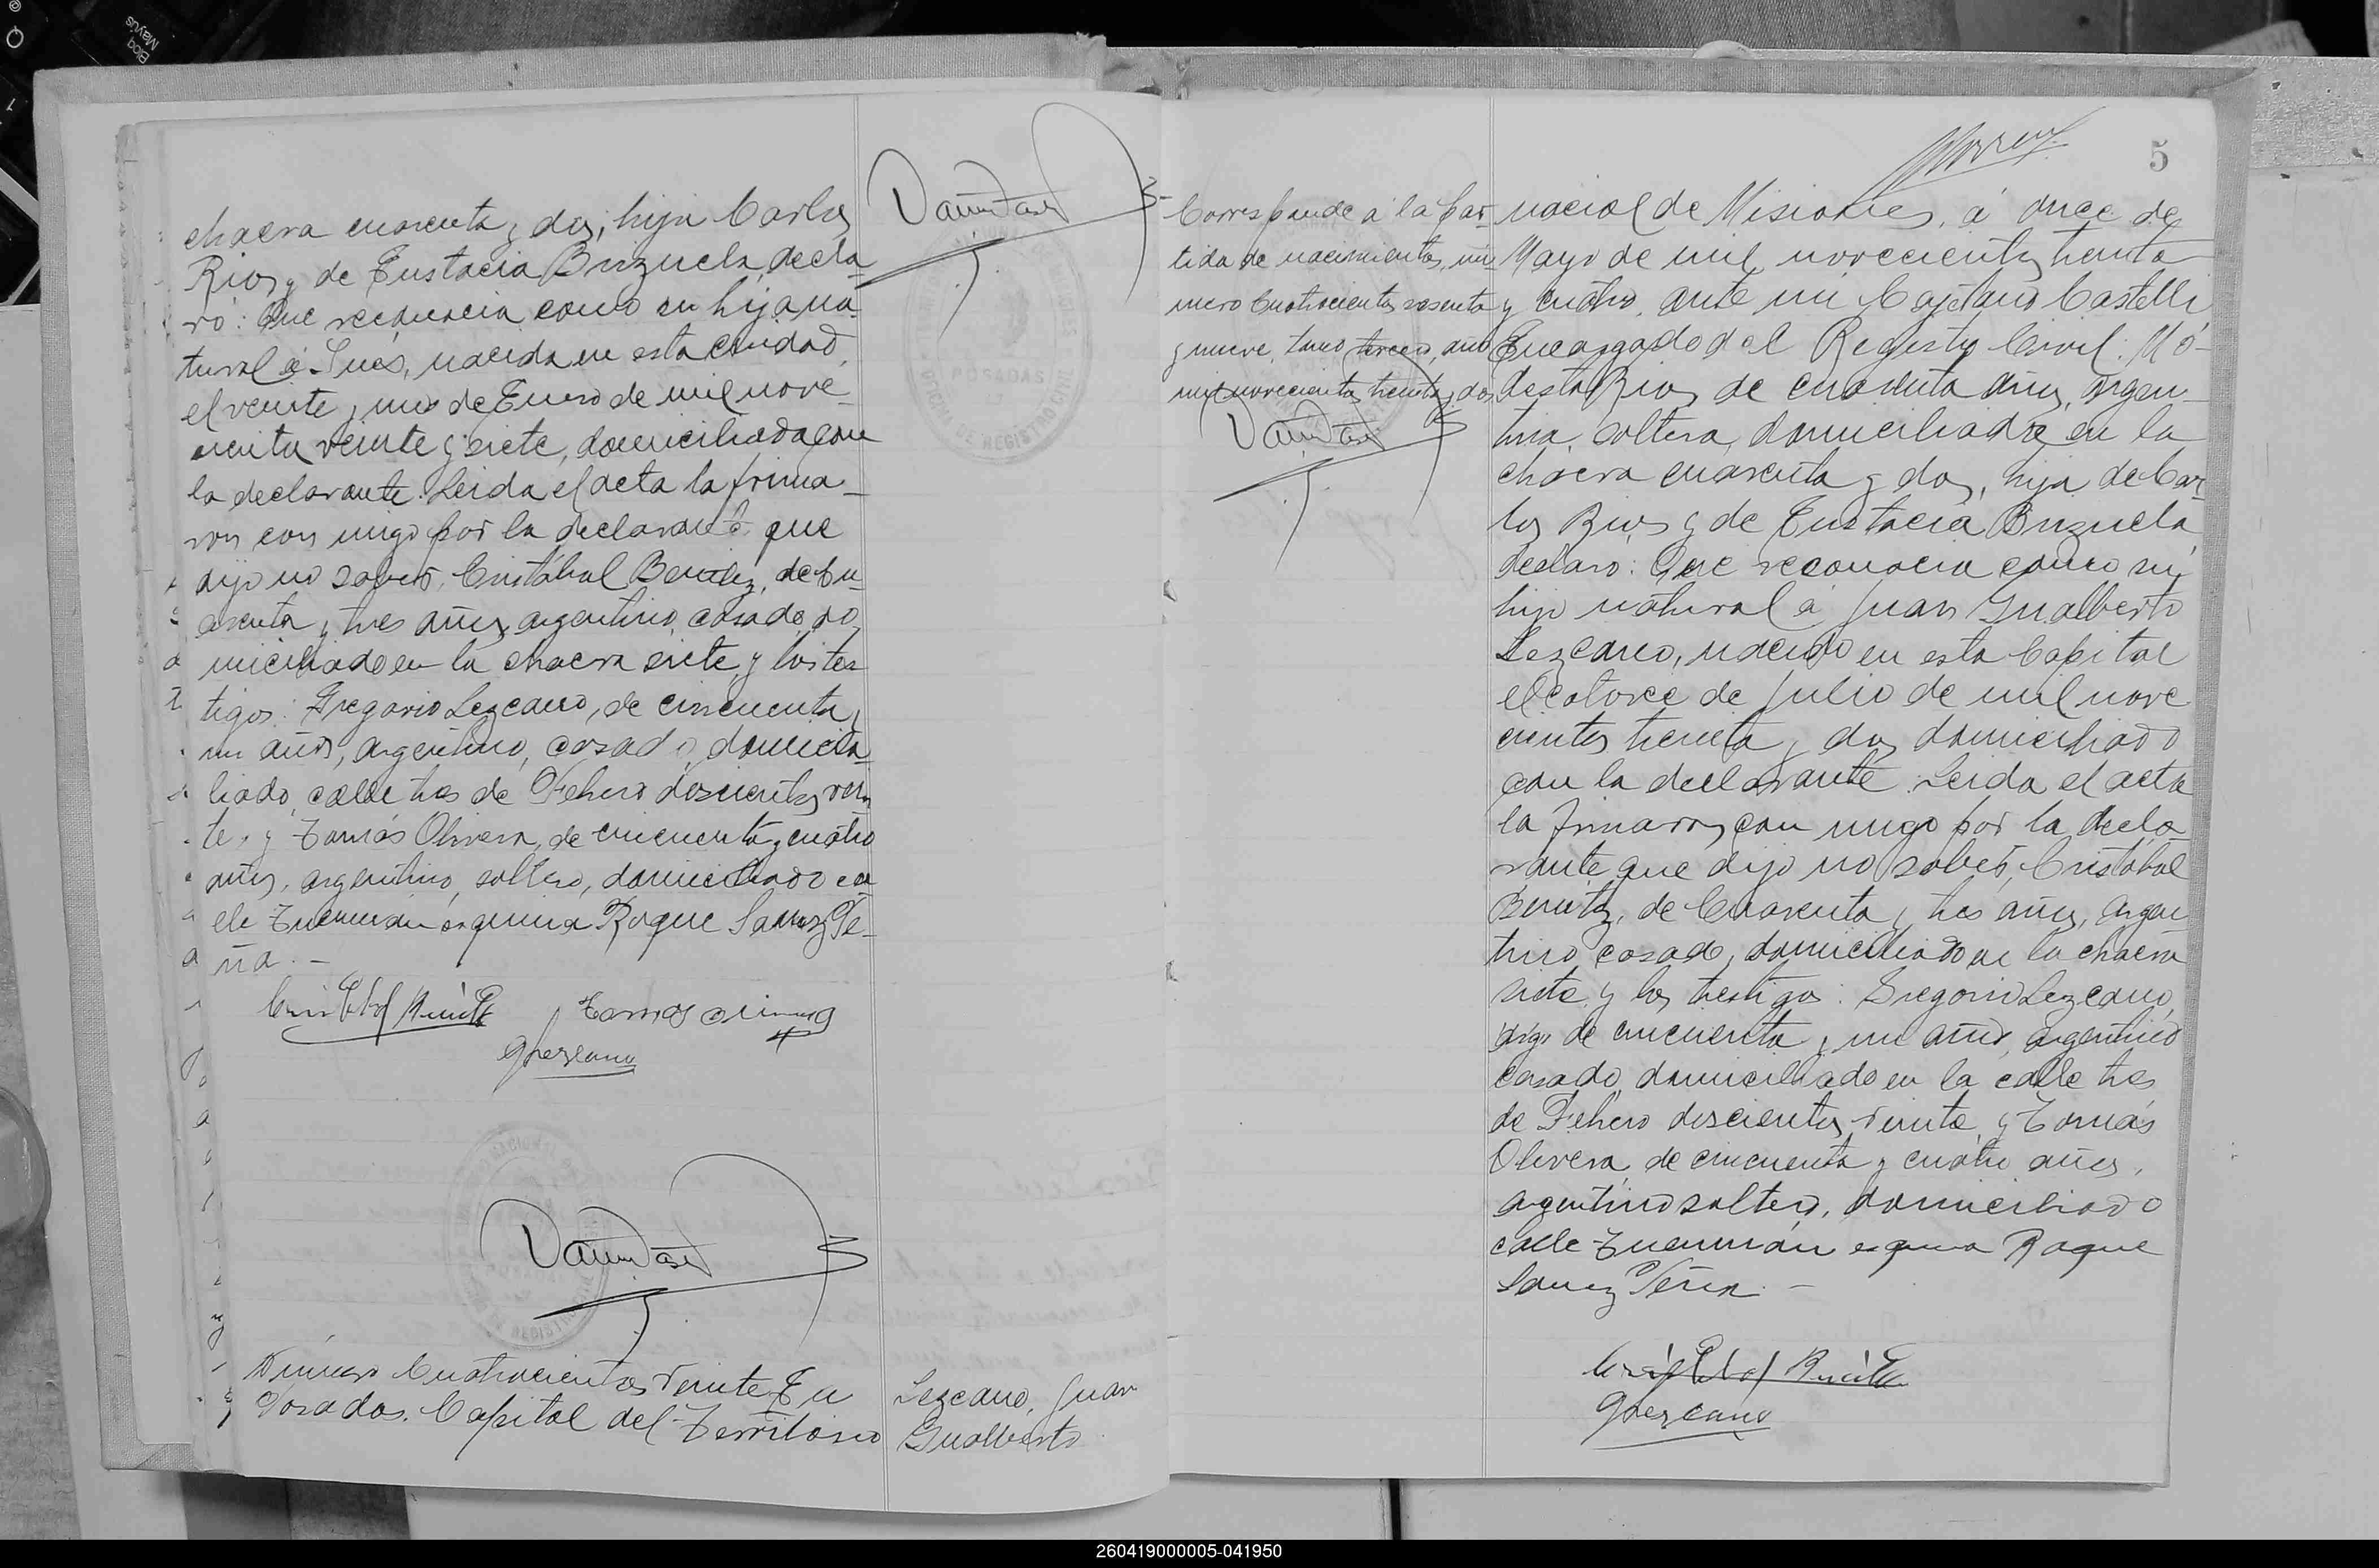 chacra cuarenta y dos, hija Carlos
Rios y de Eustacia Brizuela, decla-
ró: Que reconocia como su hija na-
tural á Inés, nacida en esta ciudad,
el veinte y uno de Enero de mil nove-
cientos veinte y siete, domiciliada con
la declarante. Leida el acta la firma-
ron con migo por la declarante que
dijo no saber, Cristóbal Benitez, de cu-
arenta y tres años, argentino, casado, do
miciliado en la chacra siete y los tes
tigos: Gregorio Lezcano, de cincuenta y
un años, argentino, casado, domicia
liado, calle tres de Febrero doscientos vein
te, y Tomás Olivera, de cincuenta y cuatro
años, argentino, soltero, domiciliado ca
lle Tucuman esquina Roque Saenz Pe-
ña. —
Cristobal Benitez Tomas Olivera
GLezcano
POSADAS
OFICINA DE REGISTRO CIVIL
Número Cuatrocientos veinte En
Posadas, Capital del Territorio
Lezcano, Juan
Gualberto
5
Corresponde á la par-
tida de nacimientos, nú-
mero Cuatrocientos sesenta
y nueve, tomo tercero, año
mil novecientos treinta y dos
nacional de Misiones, á once de
Mayo de mil novecientos treinta
y cuatro, ante mi Cayetano Castelli
Encargado del Registro Civil: Mó-
desta Rios, de cuarenta años, argen-
tina, soltera, domiciliada en la
chacra cuarenta y dos, hija de Car-
los Rios y de Eustacia Brizuela,
declaró: Que reconocia como su
hijo natural á Juan Gualberto
Lezcano, nacido en esta Capital
el catorce de Julio de mil nove
cientos treinta y dos domiciliado
con la declarante. Leida el acta
la firmaron con migo por la decla-
rante que dijo no saber, Cristobal
Benitez, de Cuarenta y tres años, argen
tino casado, domiciliado en la chacra
siete y los testigos: Gregorio Lezcano,
digo de cincuenta y un años, argentino
casado, domiciliado en la calle tres
de Febrero doscientos veinte, y Tomás
Olivera, de cincuenta y cuatro años,
argentino soltero, domiciliado
calle Tucumán esquina Roque
Saenz Peña. —
Cristobal Benitez
GLezcano
260419000005-041950